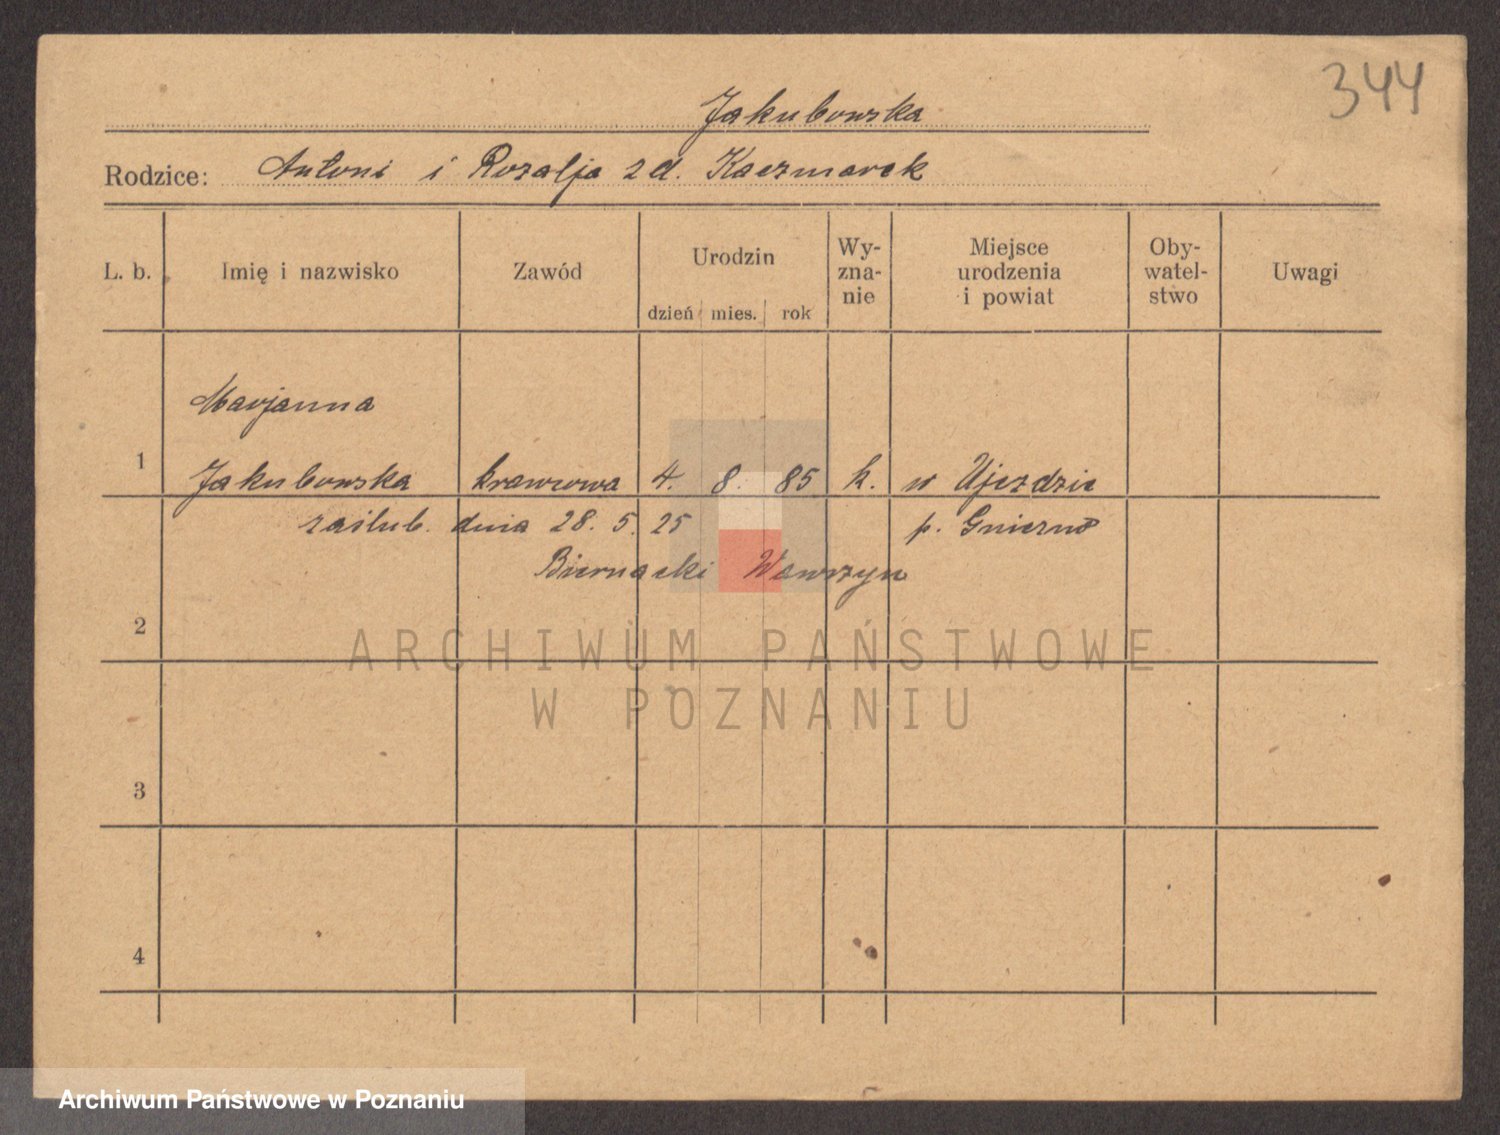 344
Jakubowska
Rodzice: Antoni i Rozalja z d. Kaczmarek
L. b. Imię i nazwisko Zawód Urodzin dzień mies. rok Wy-zna-nie Miejsce urodzenia i powiat Oby-watel-stwo Uwagi
Marjanna
1 Jakubowska krawcowa 4. 8. 85 k. w Ujezdzie
zaślub. dnia 28. 5. 25 p. Gniezno
Biernacki Wawrzyn
2
ARCHIWUM PAŃSTWOWE
W POZNANIU
3
4
Archiwum Państwowe w Poznaniu